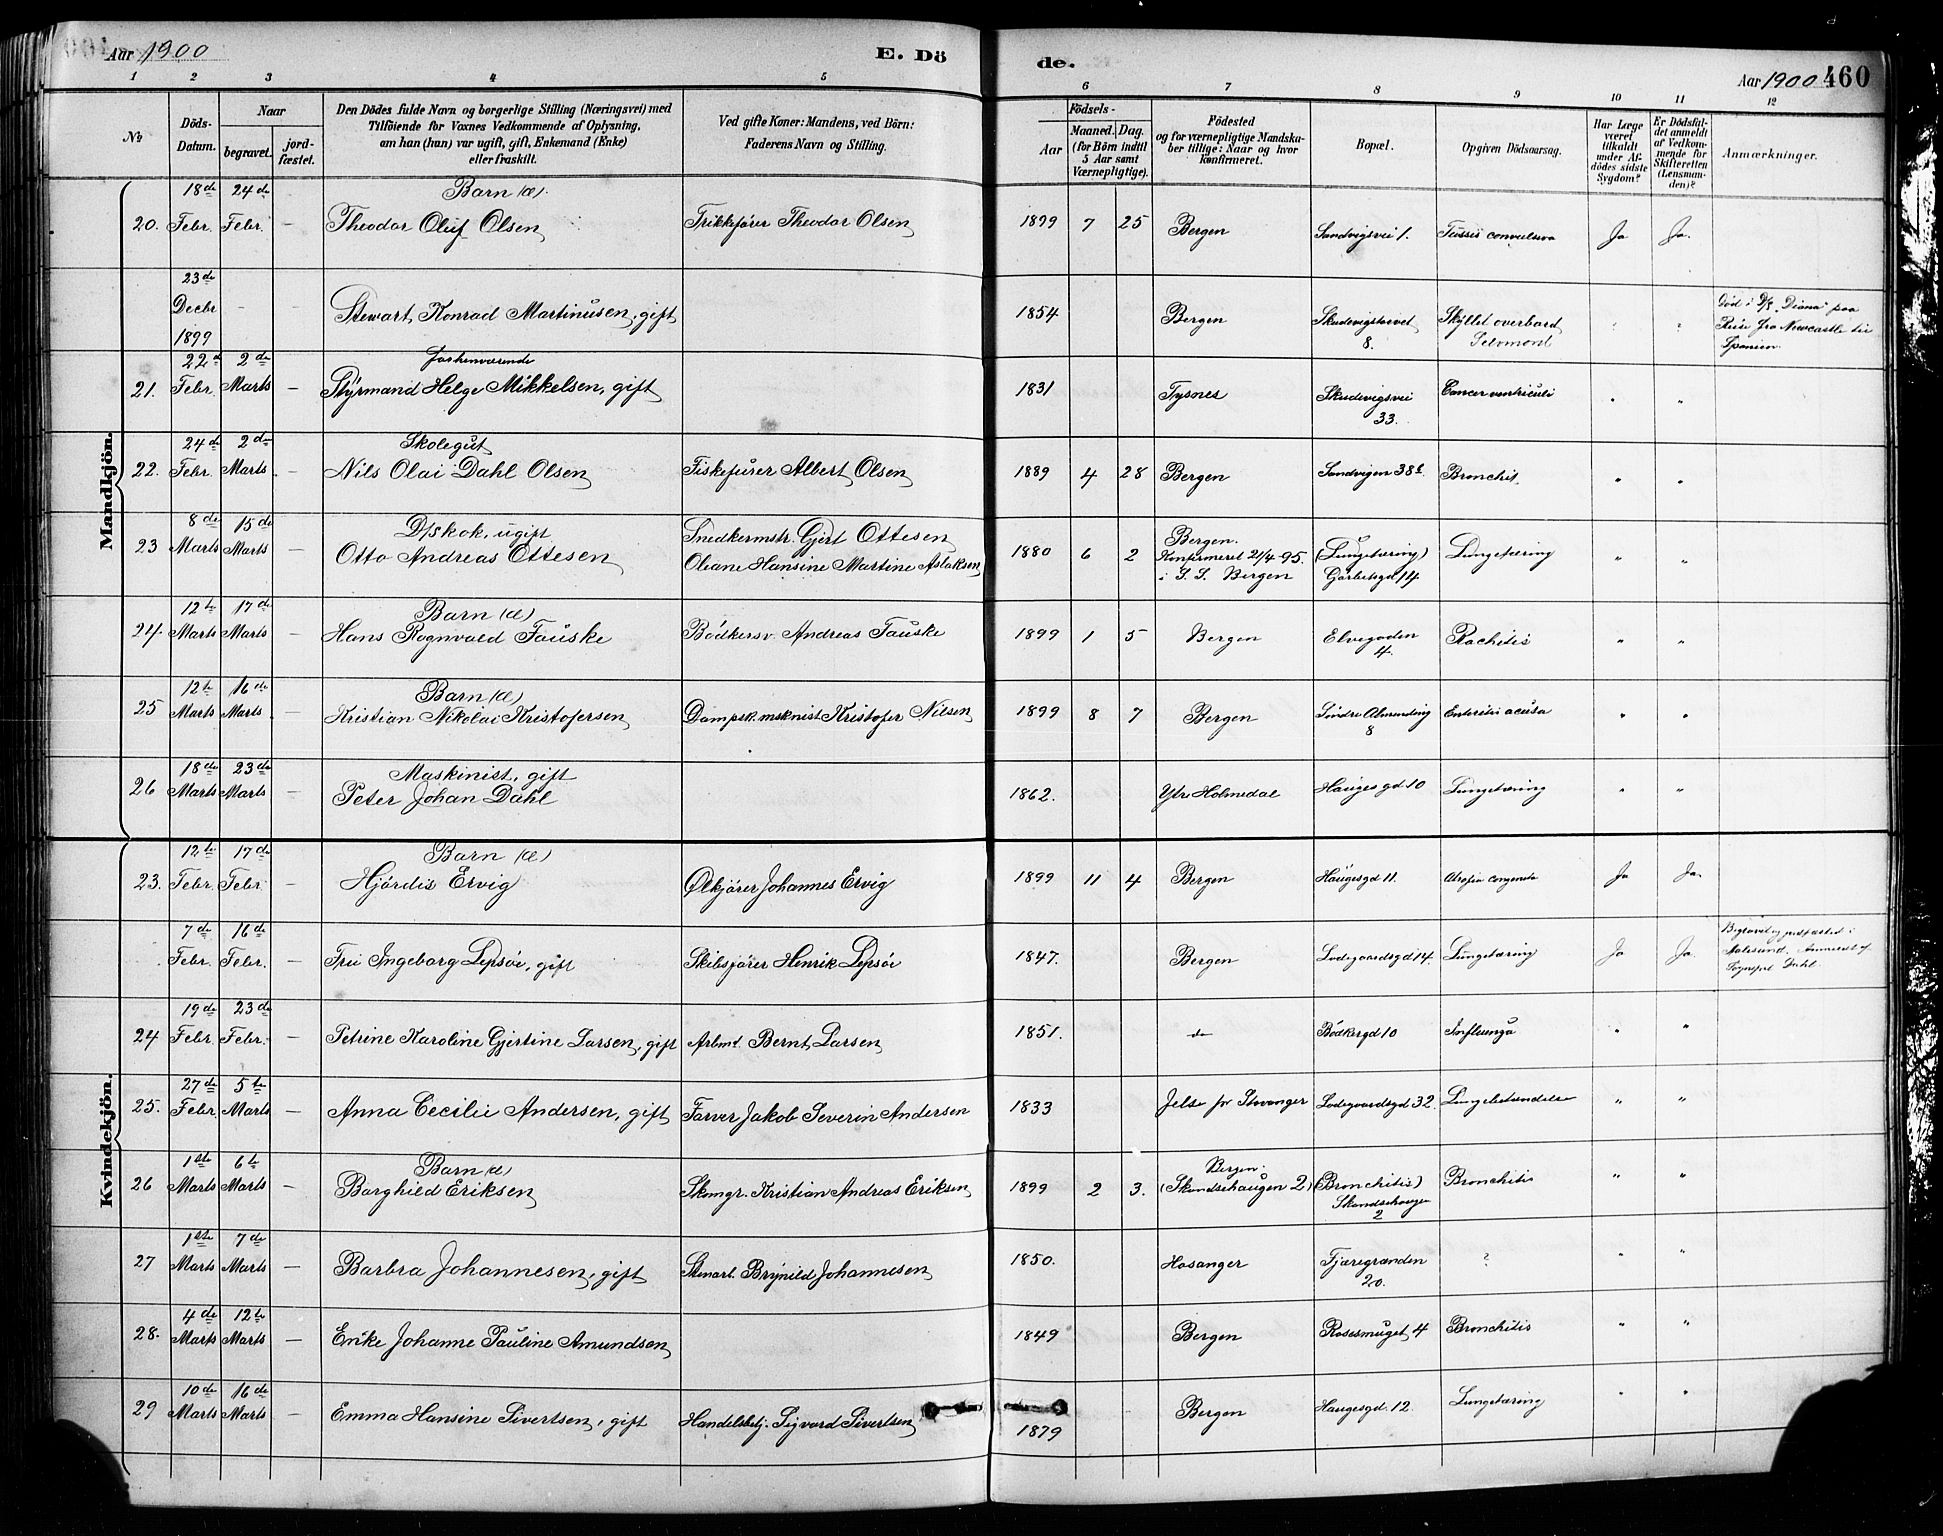 Aar 1900
E. Dö
de.
Aar 1900
460
1 2 3 4 5 6 7 8 9 10 11 12
No
Döds-Datum.
Naar
begravet.
jord-fæstet.
Den Dödes fulde Navn og borgerlige Stilling (Næringsvei) med
Tilföiende for Voxnes Vedkommende af Oplysning,
om han (hun) var ugift, gift, Enkemand (Enke)
eller fraskilt.
Ved gifte Koner: Mandens, ved Börn:
Faderens Navn og Stilling.
Födsels-
Aar
Maaned. Dag.
(for Börn indtil
5 Aar samt
Værnepligtige).
Födested
og for værnepligtige Mandska-
ber tillige: Naar og hvor
konfirmeret.
Bopæl.
Opgiven Dödsaarsag.
Har Læge
været
tilkaldt
under Af-
dödes sidste
Sygdom?
Er Dödsfal-
det anmeldt
af Vedkom-
mende for
Skifteretten
(Lensman-
den)?
Anmærkninger.
Mandkjön.
18de 24de Barn (æ).
20. Febr. Febr. — Theodor Oluf Olsen Trikkefører Theodor Olsen 1899 7 25 Bergen Sandvigsvei 1. Tussis convulsva Ja Ja.
23de
Decbr - -
1899
Stewart Konrad Martinusen, gift 1854 Bergen Skudevigstorvet 8. Skyllet overbord Selvmord
Död i D/S "Diana" paa
Reise fra Newcastle til
Spanien.
22d 2de forhenværende
21. Febr. Marts — Styrmand Helge Mikkelsen, gift 1831 Tysnes Skudevigsvei 33. Cancer ventriculi " "
24de 2de Skolegut
22. Febr. Marts — Nils Olai Dahl Olsen Fiskefører Albert Olsen 1889 4 28 Bergen Sandvigen 38 Bronchit. " "
8de 15de D/skok, ugift Snedkermstr. Gjert Ottesen
23 Marts Marts — Otto Andreas Ottesen Oleane Hansine Martine Aslaksen 1880 6 2 Bergen.
Konfirmeret 21/4-95.
i S. S. Bergen
(Lungetæring)
Garbetsgd 14 Lungetæring " "
12te 17de Barn (æ)
24. Marts Marts — Hans Rognvald Fauske Bödkersv. Andreas Fauske 1899 1 5 Bergen Elvegaden 4. Rachitis " "
12te 16de Barn (æ)
25 Marts Marts — Kristian Nikolai Kristofersen Dampsk.msknist Kristofer Nilsen 1899 8 7 Bergen Söndre Almending 8 " "
18de 23de Maskinist, gift
26 Marts Marts — Peter Johan Dahl 1862. Ytre Holmedal Hauges gd 10 Lungetæring " "
Kvindekjön.
12te 17de Barn (æ)
23. Febr. Febr. — Hjördis Ervig Ølkjører Johannes Ervig 1899 11 4 Bergen Haugesgd 11. Ja Ja.
7de 16de
Febr. Febr. — Fru Ingeborg Lepsöe, gift Skibsfører Henrik Lepsöe 1847. Bergen Ladegaardsgd 14. Lungetæring Ja Ja.
Begravet og jordfæstet i
Aalesund. Anmeldt af
Sognepr. Dahl.
19de 23de
24 Febr. Febr. — Petrine Karoline Gjertine Larsen, gift Arbmd. Bernt Larsen 1851. do Bödkergd 10 Influenza " "
27de 5te
25. Febr. Marts — Anna Cecilie Andersen, gift Farver Jakob Severin Andersen 1833 Jelse pr Stavanger Ladegaardsgd 32. Lungebetændelse " "
1ste 6te Barn (æ)
26 Marts Marts — Borghild Eriksen Skomgr. Kristian Andreas Eriksen 1899 2 3. Bergen.
(Skandsehaugen 2) (Bronchitis)
Skandsehaugen 2 Bronchitis " "
1ste 7de
27 Marts Marts — Barbra Johannesen, gift Stenarb. Brynild Johannesen 1850. Hosanger Fjæregranden 20. ? " "
4de 12te
28. Marts Marts — Enke Johanne Pauline Amundsen 1849 Bergen Rosesmuget 4 Bronchitis " "
10de 16de
29 Marts Marts — Emma Hansine Sivertsen, gift Handelsbetj. Sigvard Sivertsen 1879 Bergen Haugesgd. 12. Lungetæring " "